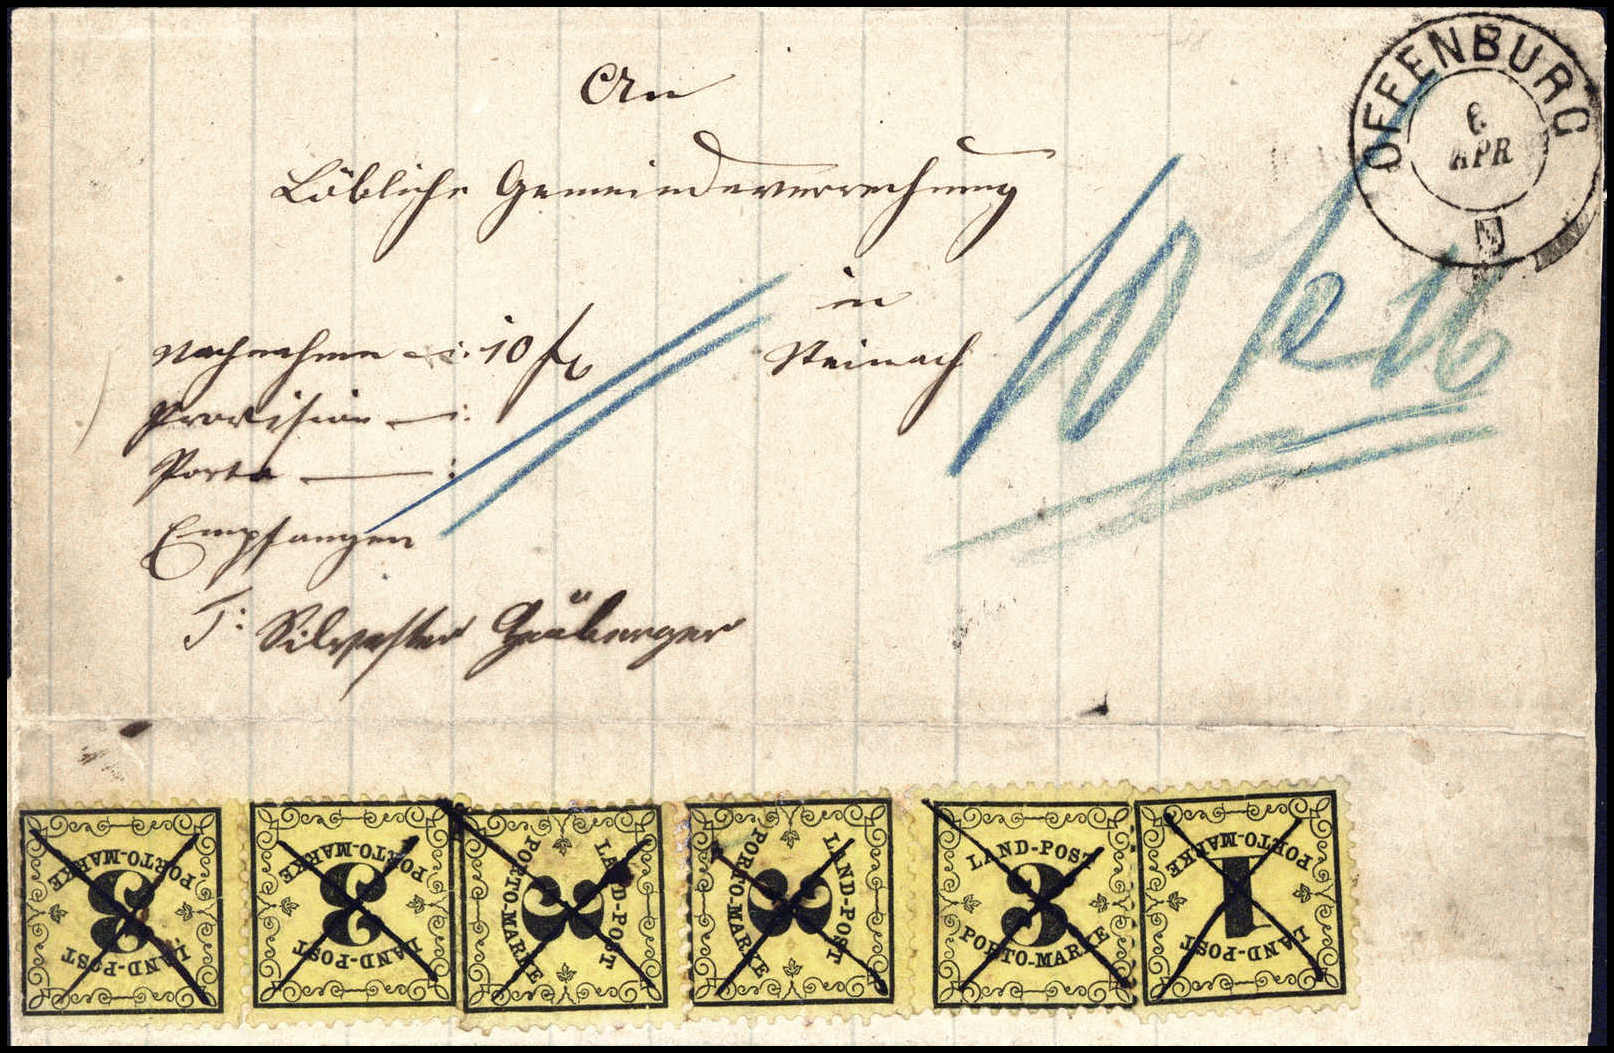 OFFENBURG
6
APR
An
Löbliche Gemeindeverrechnung
in
Steinach
Nachnahme 10 fl
Provision — :
Porto — :
Empfangen
T: Silvester
10 fl
LAND-POST 3 PORTO-MARKE
LAND-POST 3 PORTO-MARKE
LAND-POST 3 PORTO-MARKE
LAND-POST 3 PORTO-MARKE
LAND-POST 3 PORTO-MARKE
LAND-POST 1 PORTO-MARKE